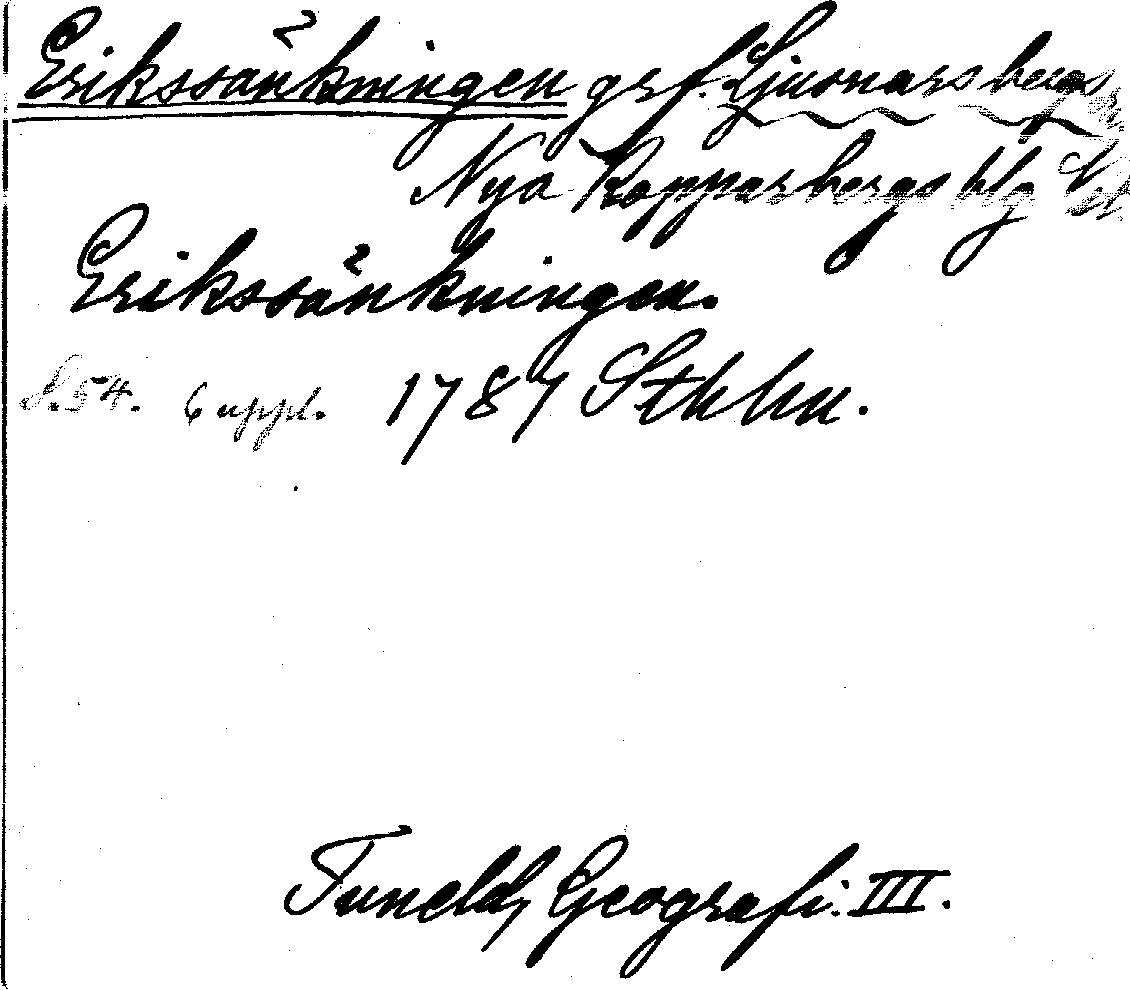 Erikssänkningen grf. Ljusnarsbergs
Nya Kopparbergs blg
Erikssänkningen.
S. 54. 6 uppl. 1787 Sthlm.
Tuneld, Geografi. III.